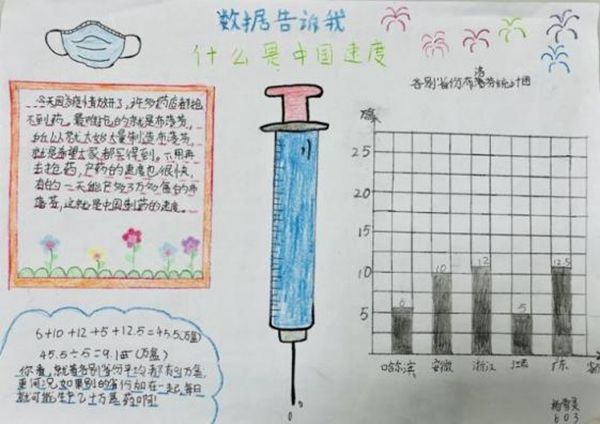 数据告诉我
什么是中国速度
今天因为疫情放开了，许多药店都抢
不到药。最难抢的就是布洛芬，
所以人就大力大量制造布洛芬，
就是希望大家都买得到。不用再
去抢药，的速度也很快，
有的一天能生多3万多盒的布
洛芬，这就是中国制药的速度。
6+10+12+5+12.5=45.5(万盒)
45.5÷5=9.1(万盒)
你看，就着各别省份平均都有9万盒，
更何况如果别的省份加在一起，每日
就可能生产几十万盒药啊!
各别省份布洛芬统计图
万盒
25
20
15
10
5
6
10
12
5
12.5
哈尔滨
安徽
浙江
江西
广东
603